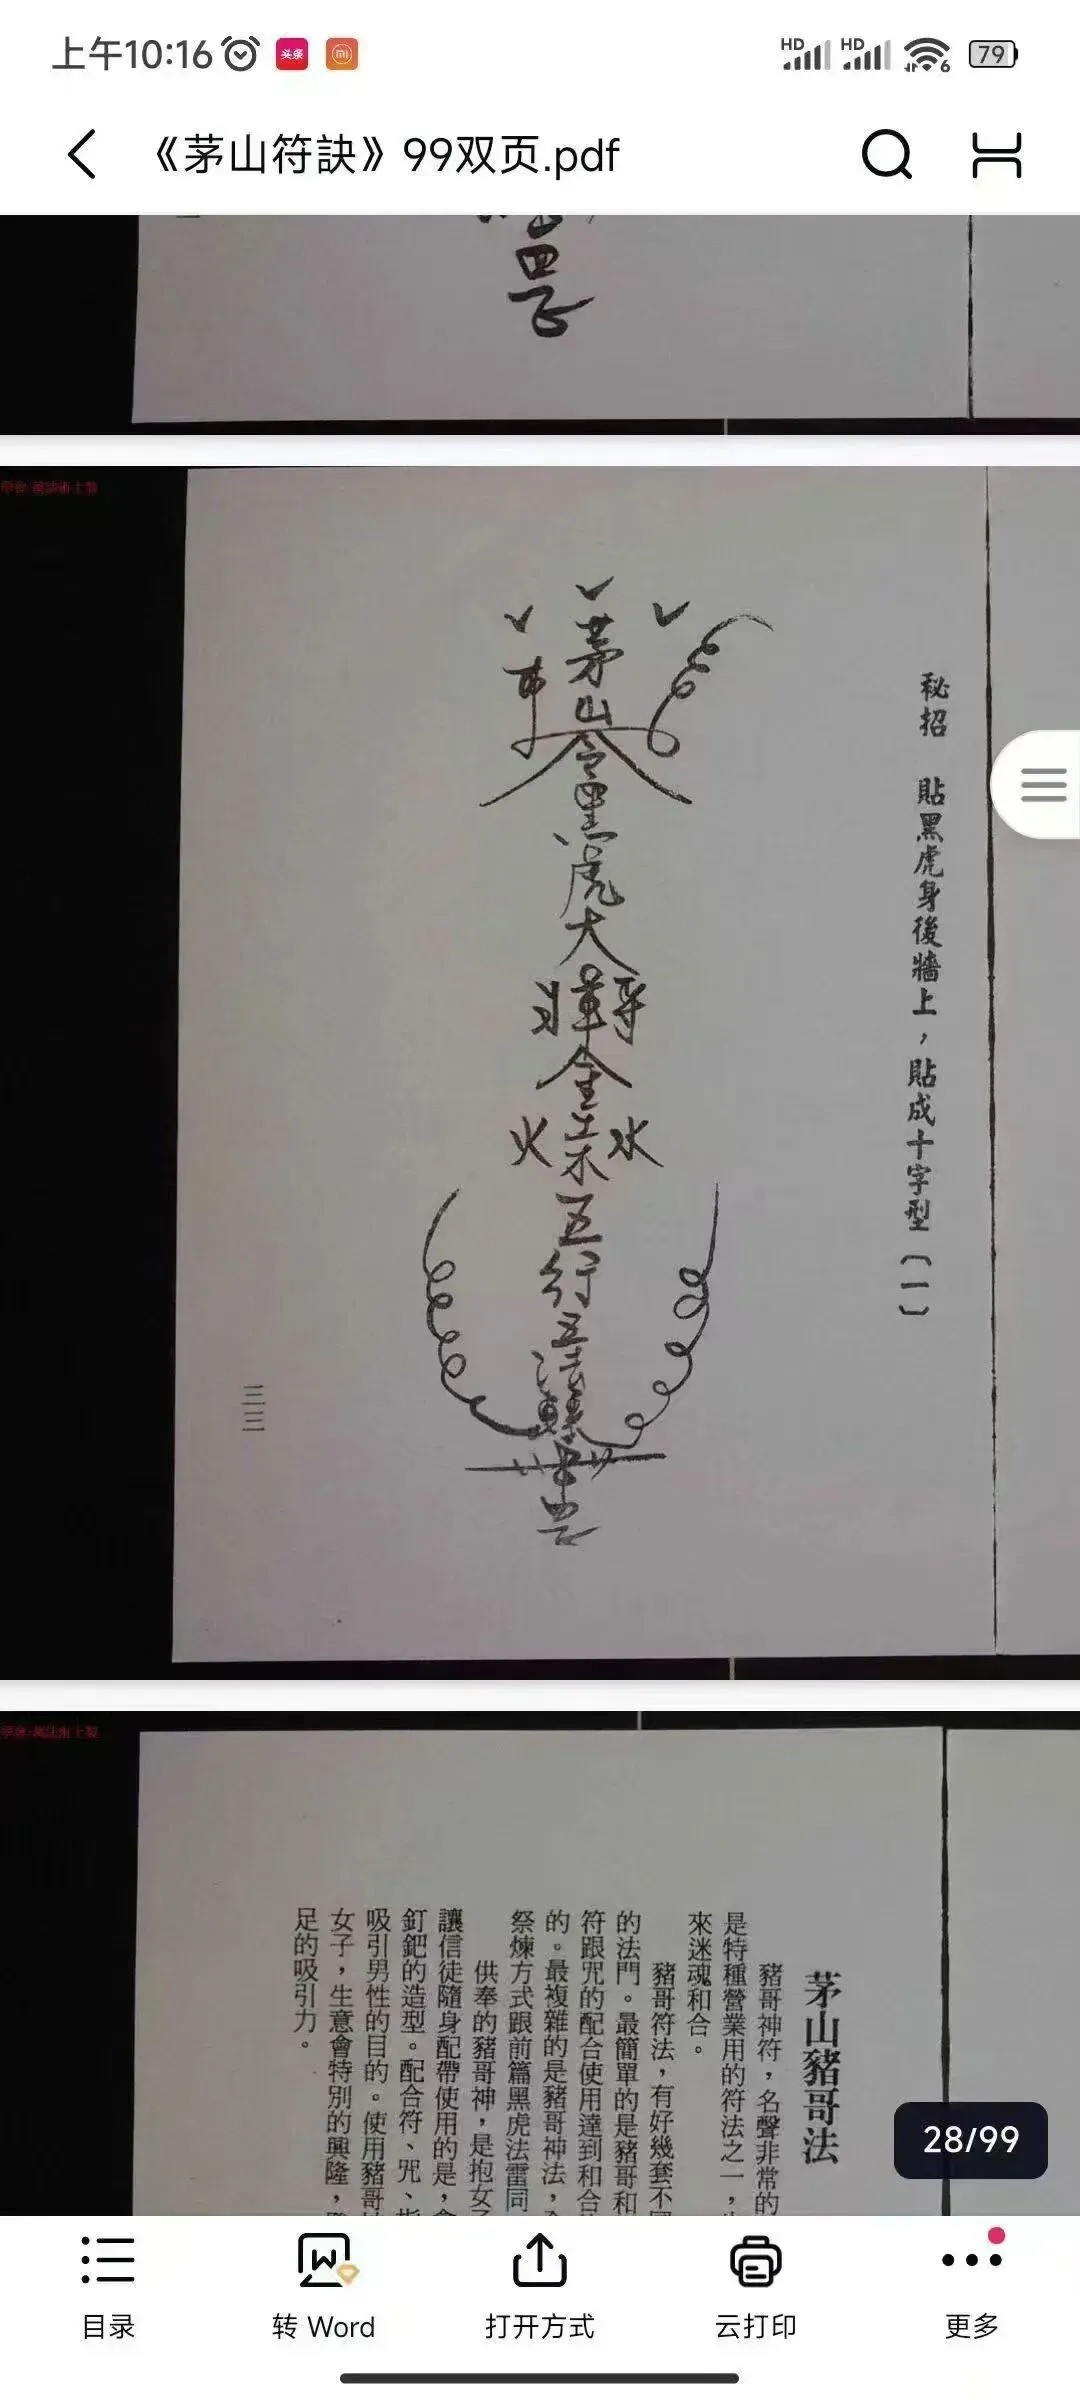 上午10:16
头条
HD
HD
6
79
《茅山符訣》99双页.pdf
秘招 貼黑虎身後牆上，貼成十字型〔一〕
茅山
令
黑虎大
金
火 土 水
木
五行
三三
茅山豬哥法
豬哥神符，名聲非常的
是特種營業用的符法之一，
來迷魂和合。
豬哥符法，有好幾套不
的法門。最簡單的是豬哥和
符跟咒的配合使用達到和合
的。最複雜的是豬哥神法，
祭煉方式跟前篇黑虎法雷同
供奉的豬哥神，是抱女
讓信徒隨身配帶使用的是，
釘鈀的造型。配合符、咒、
吸引男性的目的。使用豬哥
女子，生意會特別的興隆，
足的吸引力。
28/99
目录
转 Word
打开方式
云打印
更多